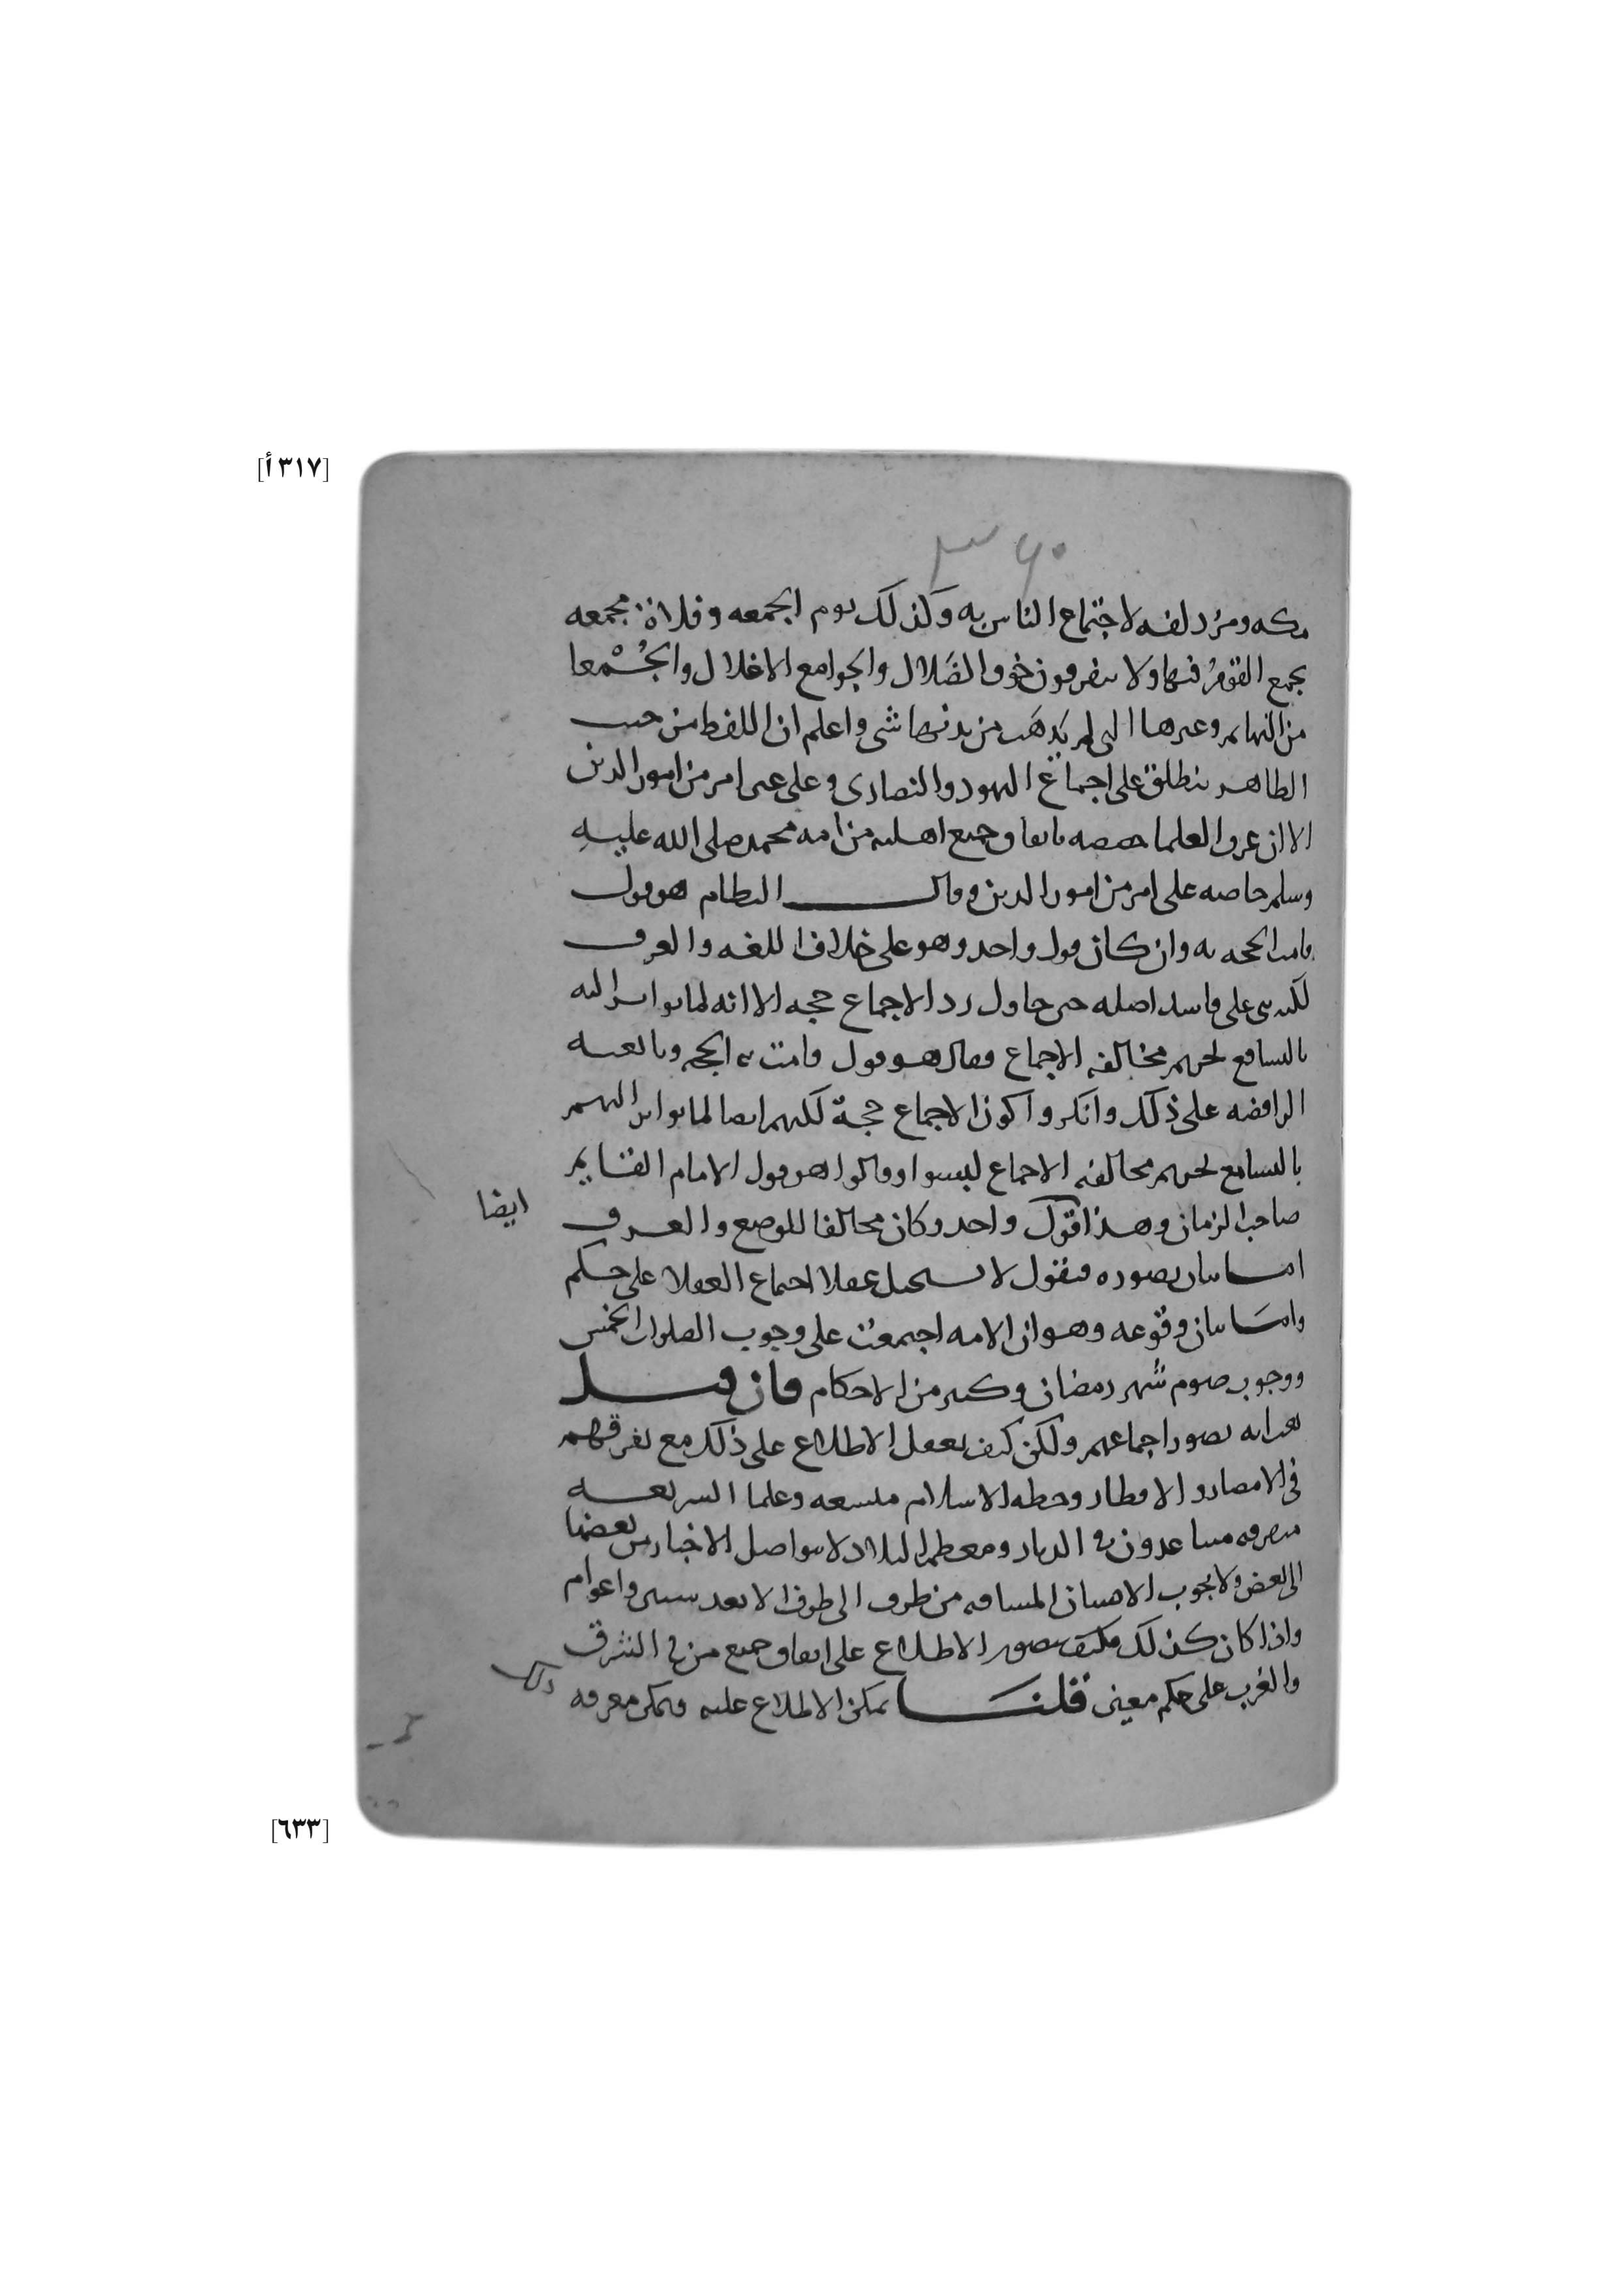 [٣١٧ أ]
٣٦٠
مكه ومزدلفه لاجتماع الناس به وكذلك يوم الجمعه وفلاة مجمعه
يجمع القوم فيها ولا يتفرقون خوف الضلال والجوامع الاغلال والجمعا
من البهايم وغيرها التي لم يذهب من بدنها شي واعلم ان اللفظ من حيث
الظاهر ينطلق على اجماع اليهود والنصارى وعلى غير امر من امور الدين
الا ان عرف العلما خصصه باتفاق جميع اهليه من امه محمد صلى الله عليه
وسلم خاصه على امر من امور الدين وقال النظام هو قول
قامت الحجه به وان كان قول واحد وهو على خلاف اللغه والعرف
لكنه بنى على فاسد اصله حين حاول رد الاجماع حجه الا انه لما تواتر اليه
بالتسامع تحريم مخالفه الاجماع فقال هو قول قامت به الحجه وتابعته
الرافضه على ذلك وانكروا كون الاجماع حجة لكنهم ايضا لما تواتر اليهم
بالتسامع تحريم مخالفه الاجماع لبسوا وقالوا هو قول الامام القايم
صاحب الزمان وهذا قول واحد وكان مخالفا للوضع والعرف
ايضا
اما بيان تصوره فنقول لا يستحيل عقلا اجتماع العقلا على حكم
واما بيان وقوعه وهو ان الامه اجتمعت على وجوب الصلوات الخمس
ووجوب صوم شهر رمضان وكثير من الاحكام فان قيل
تصور اجماعهم ولكن كيف يعقل الاطلاع على ذلك مع تفرقهم
في الامصار والاقطار وخطه الاسلام متسعه وعلما الشريعه
متفرقه متباعدون في الديار ومعظم البلاد لا يتواصل الاخبار من بعضها
الى بعض ولا يجوب الانسان المسافه من طرف الى طرف الا بعد سنين واعوام
واذا كان كذلك فكيف يتصور الاطلاع على اتفاق جميع من في الشرق
والغرب على حكم معين قلنا يمكن الاطلاع عليه ويمكن معرفه
ذلك
[٦٣٣]